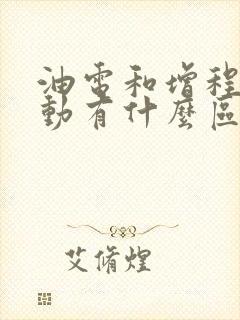 油電和增程
動有什麼區
艾脩煌